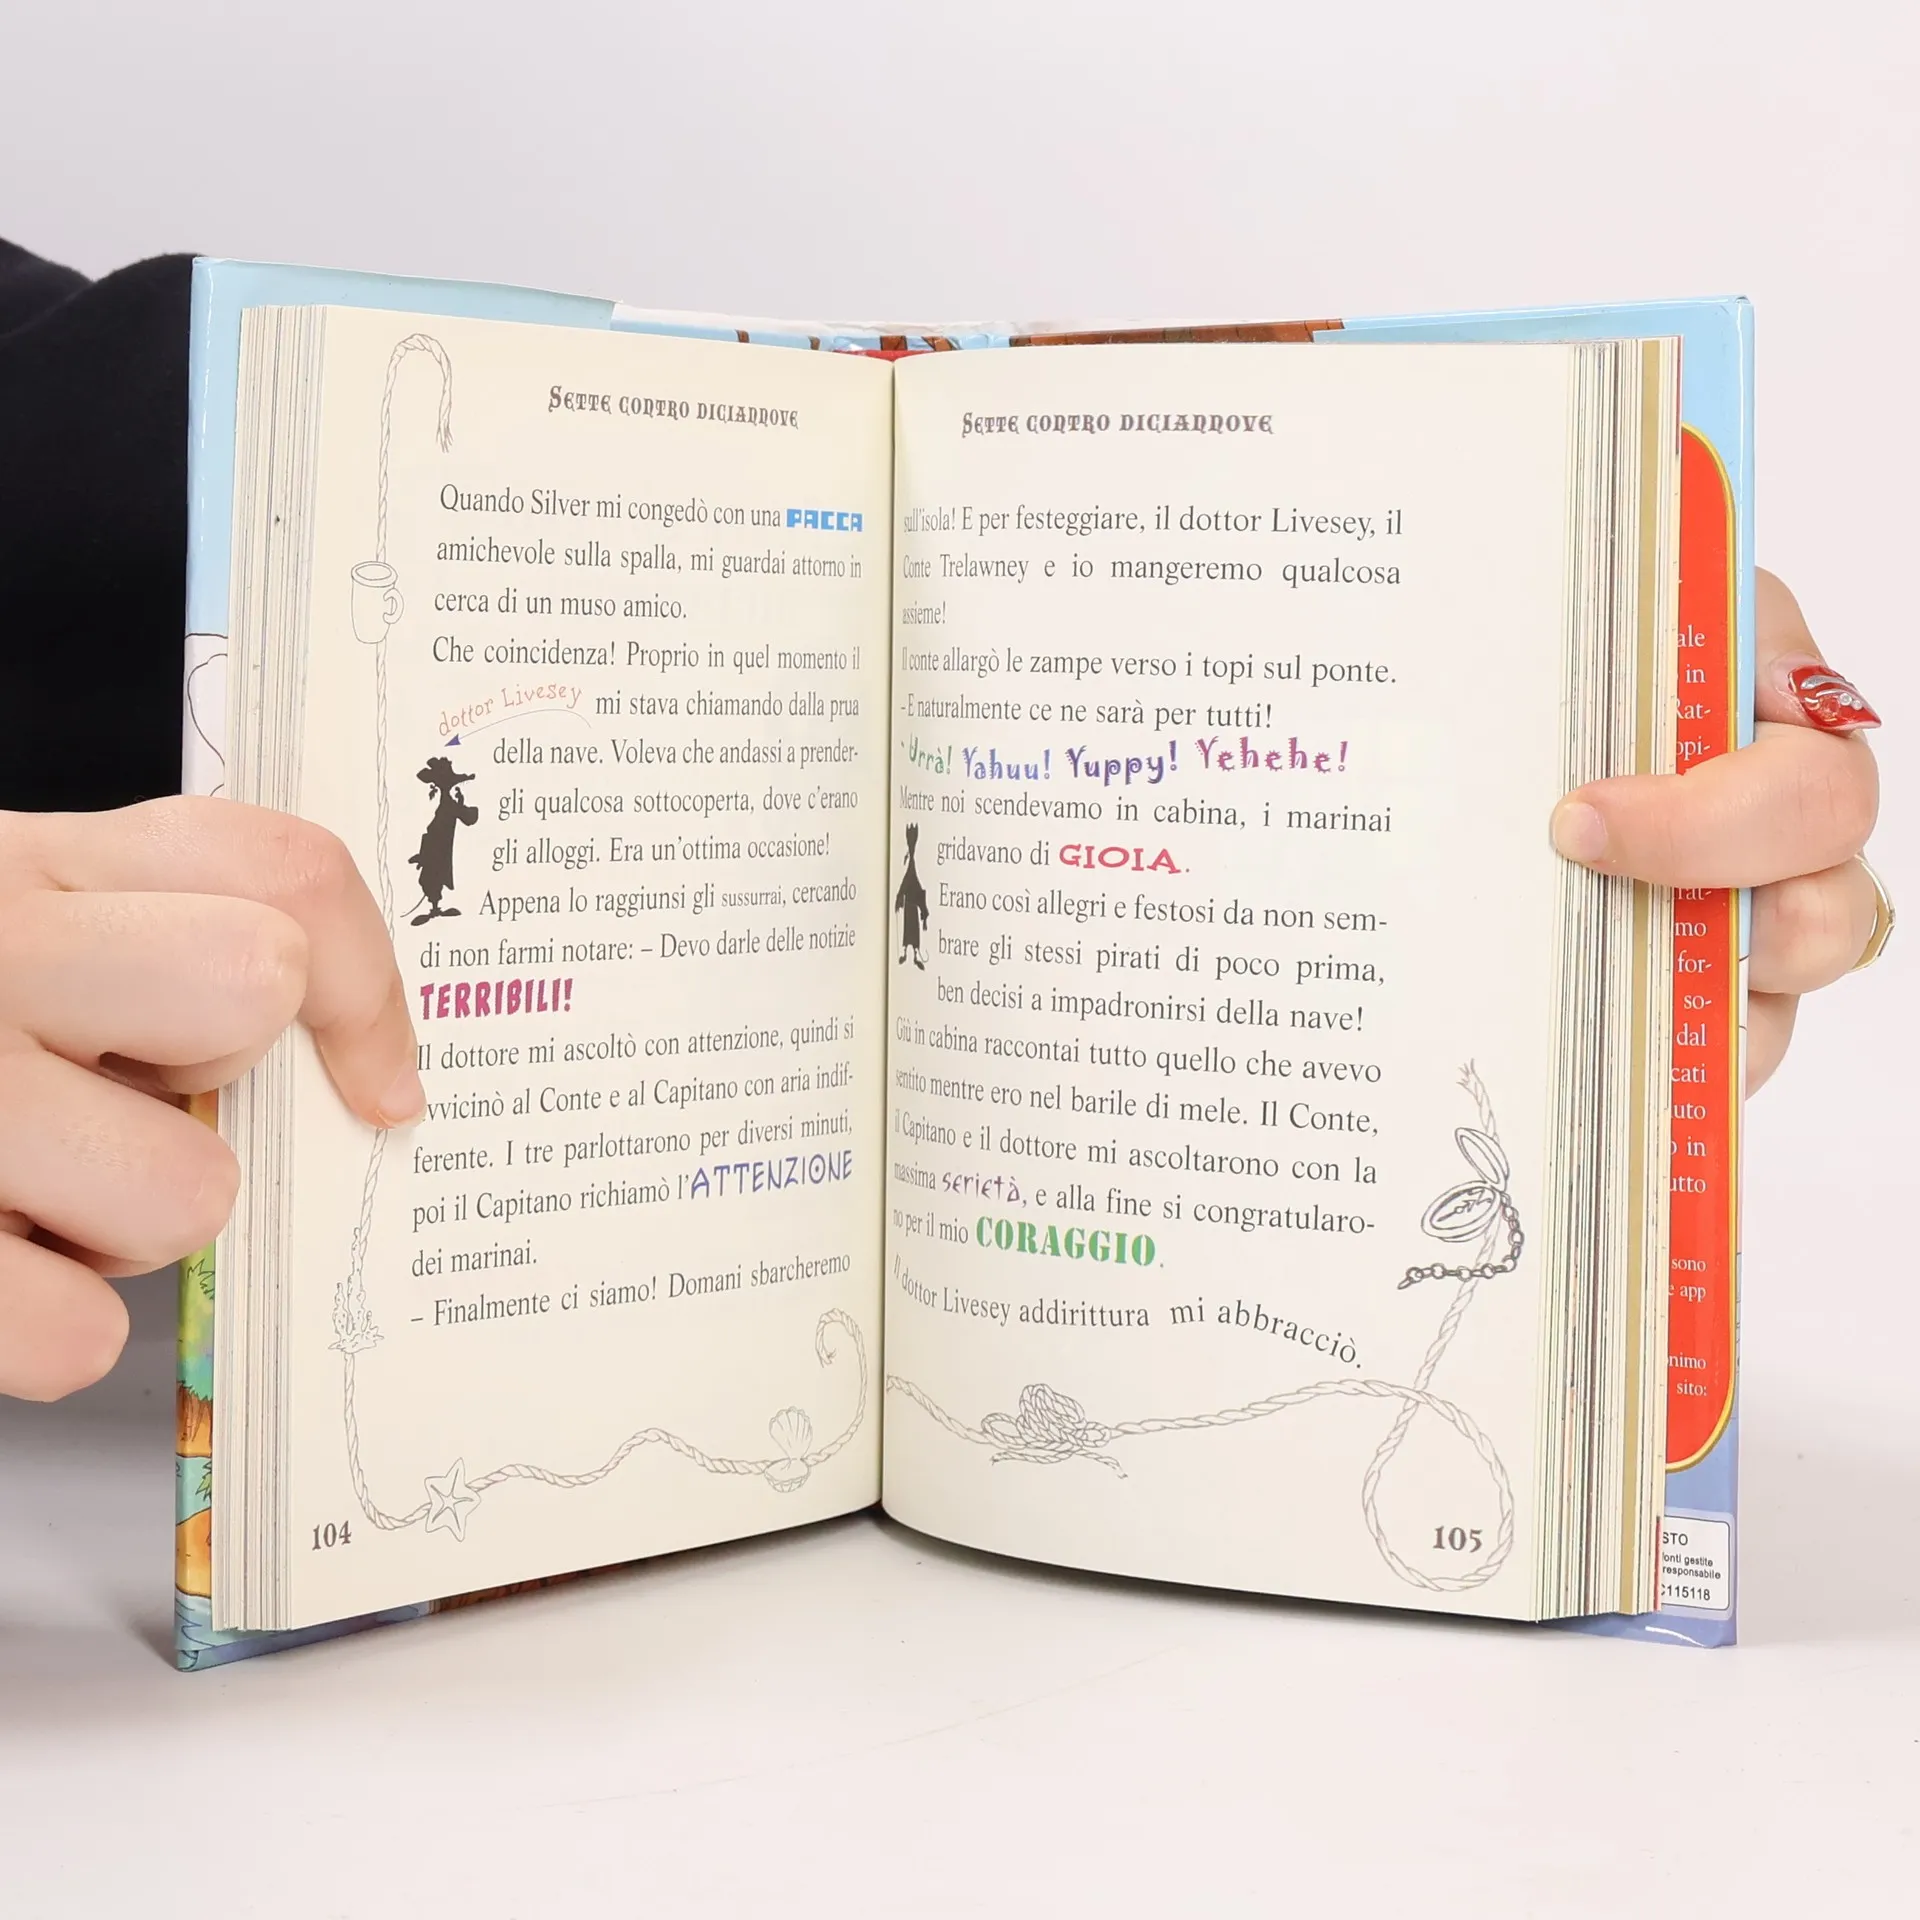 SETTE CONTRO DICIANNOVE
Quando Silver mi congedò con una PACCA
amichevole sulla spalla, mi guardai attorno in
cerca di un muso amico.
Che coincidenza! Proprio in quel momento il
dottor Livesey mi stava chiamando dalla prua
della nave. Voleva che andassi a prender-
gli qualcosa sottocoperta, dove c'erano
gli alloggi. Era un'ottima occasione!
Appena lo raggiunsi gli sussurrai, cercando
di non farmi notare: – Devo darle delle notizie
TERRIBILI!
Il dottore mi ascoltò con attenzione, quindi si
vvicinò al Conte e al Capitano con aria indif-
ferente. I tre parlottarono per diversi minuti,
poi il Capitano richiamò l'ATTENZIONE
dei marinai.
– Finalmente ci siamo! Domani sbarcheremo
104
SETTE CONTRO DICIANNOVE
sull'isola! E per festeggiare, il dottor Livesey, il
Conte Trelawney e io mangeremo qualcosa
assieme!
Il conte allargò le zampe verso i topi sul ponte.
- E naturalmente ce ne sarà per tutti!
- Urrà! Yahuu! Yuppy! Yehehe!
Mentre noi scendevamo in cabina, i marinai
gridavano di GIOIA.
Erano così allegri e festosi da non sem-
brare gli stessi pirati di poco prima,
ben decisi a impadronirsi della nave!
Giù in cabina raccontai tutto quello che avevo
sentito mentre ero nel barile di mele. Il Conte,
il Capitano e il dottore mi ascoltarono con la
massima serietà, e alla fine si congratularo-
no per il mio CORAGGIO.
Il dottor Livesey addirittura mi abbracciò.
105
ale
in
Rat-
opi-
rat-
mo
for-
so-
dal
cati
uto
in
utto
sono
e app
nimo
sito:
STO
onti gestite
responsabile
C115118